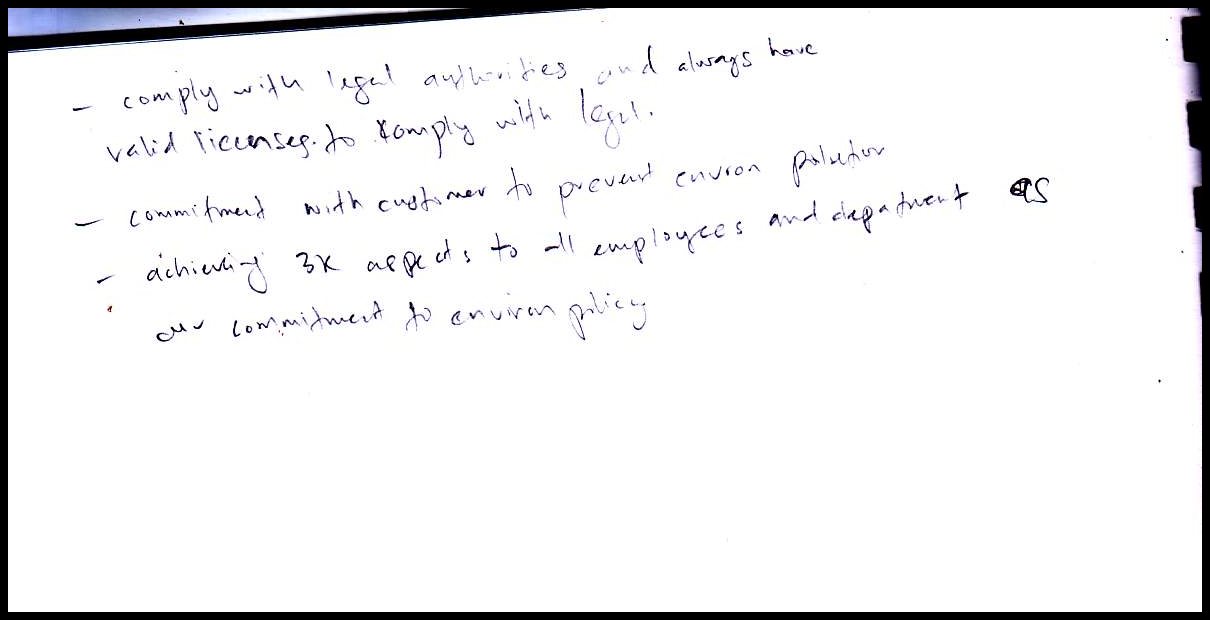 - comply with legal authorities and always have
valid licenses. to comply with legal.
- commitment with customer to prevent environ polution
- achieving 3K aspects to all employees and department as
our commitment to environ policy